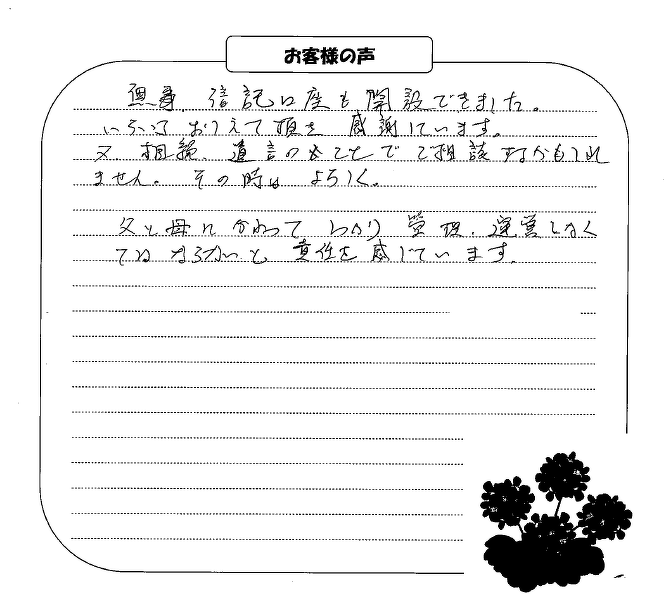 お客様の声
無事、信託口座も開設できました。
いろいろおしえて頂き 感謝しています。
又、相続、遺言の ことで ご相談するかもしれ
ません。その時は よろしく。
父と母に かわって しっかり 管理、運営しなく
てはならないと 責任を感じています。